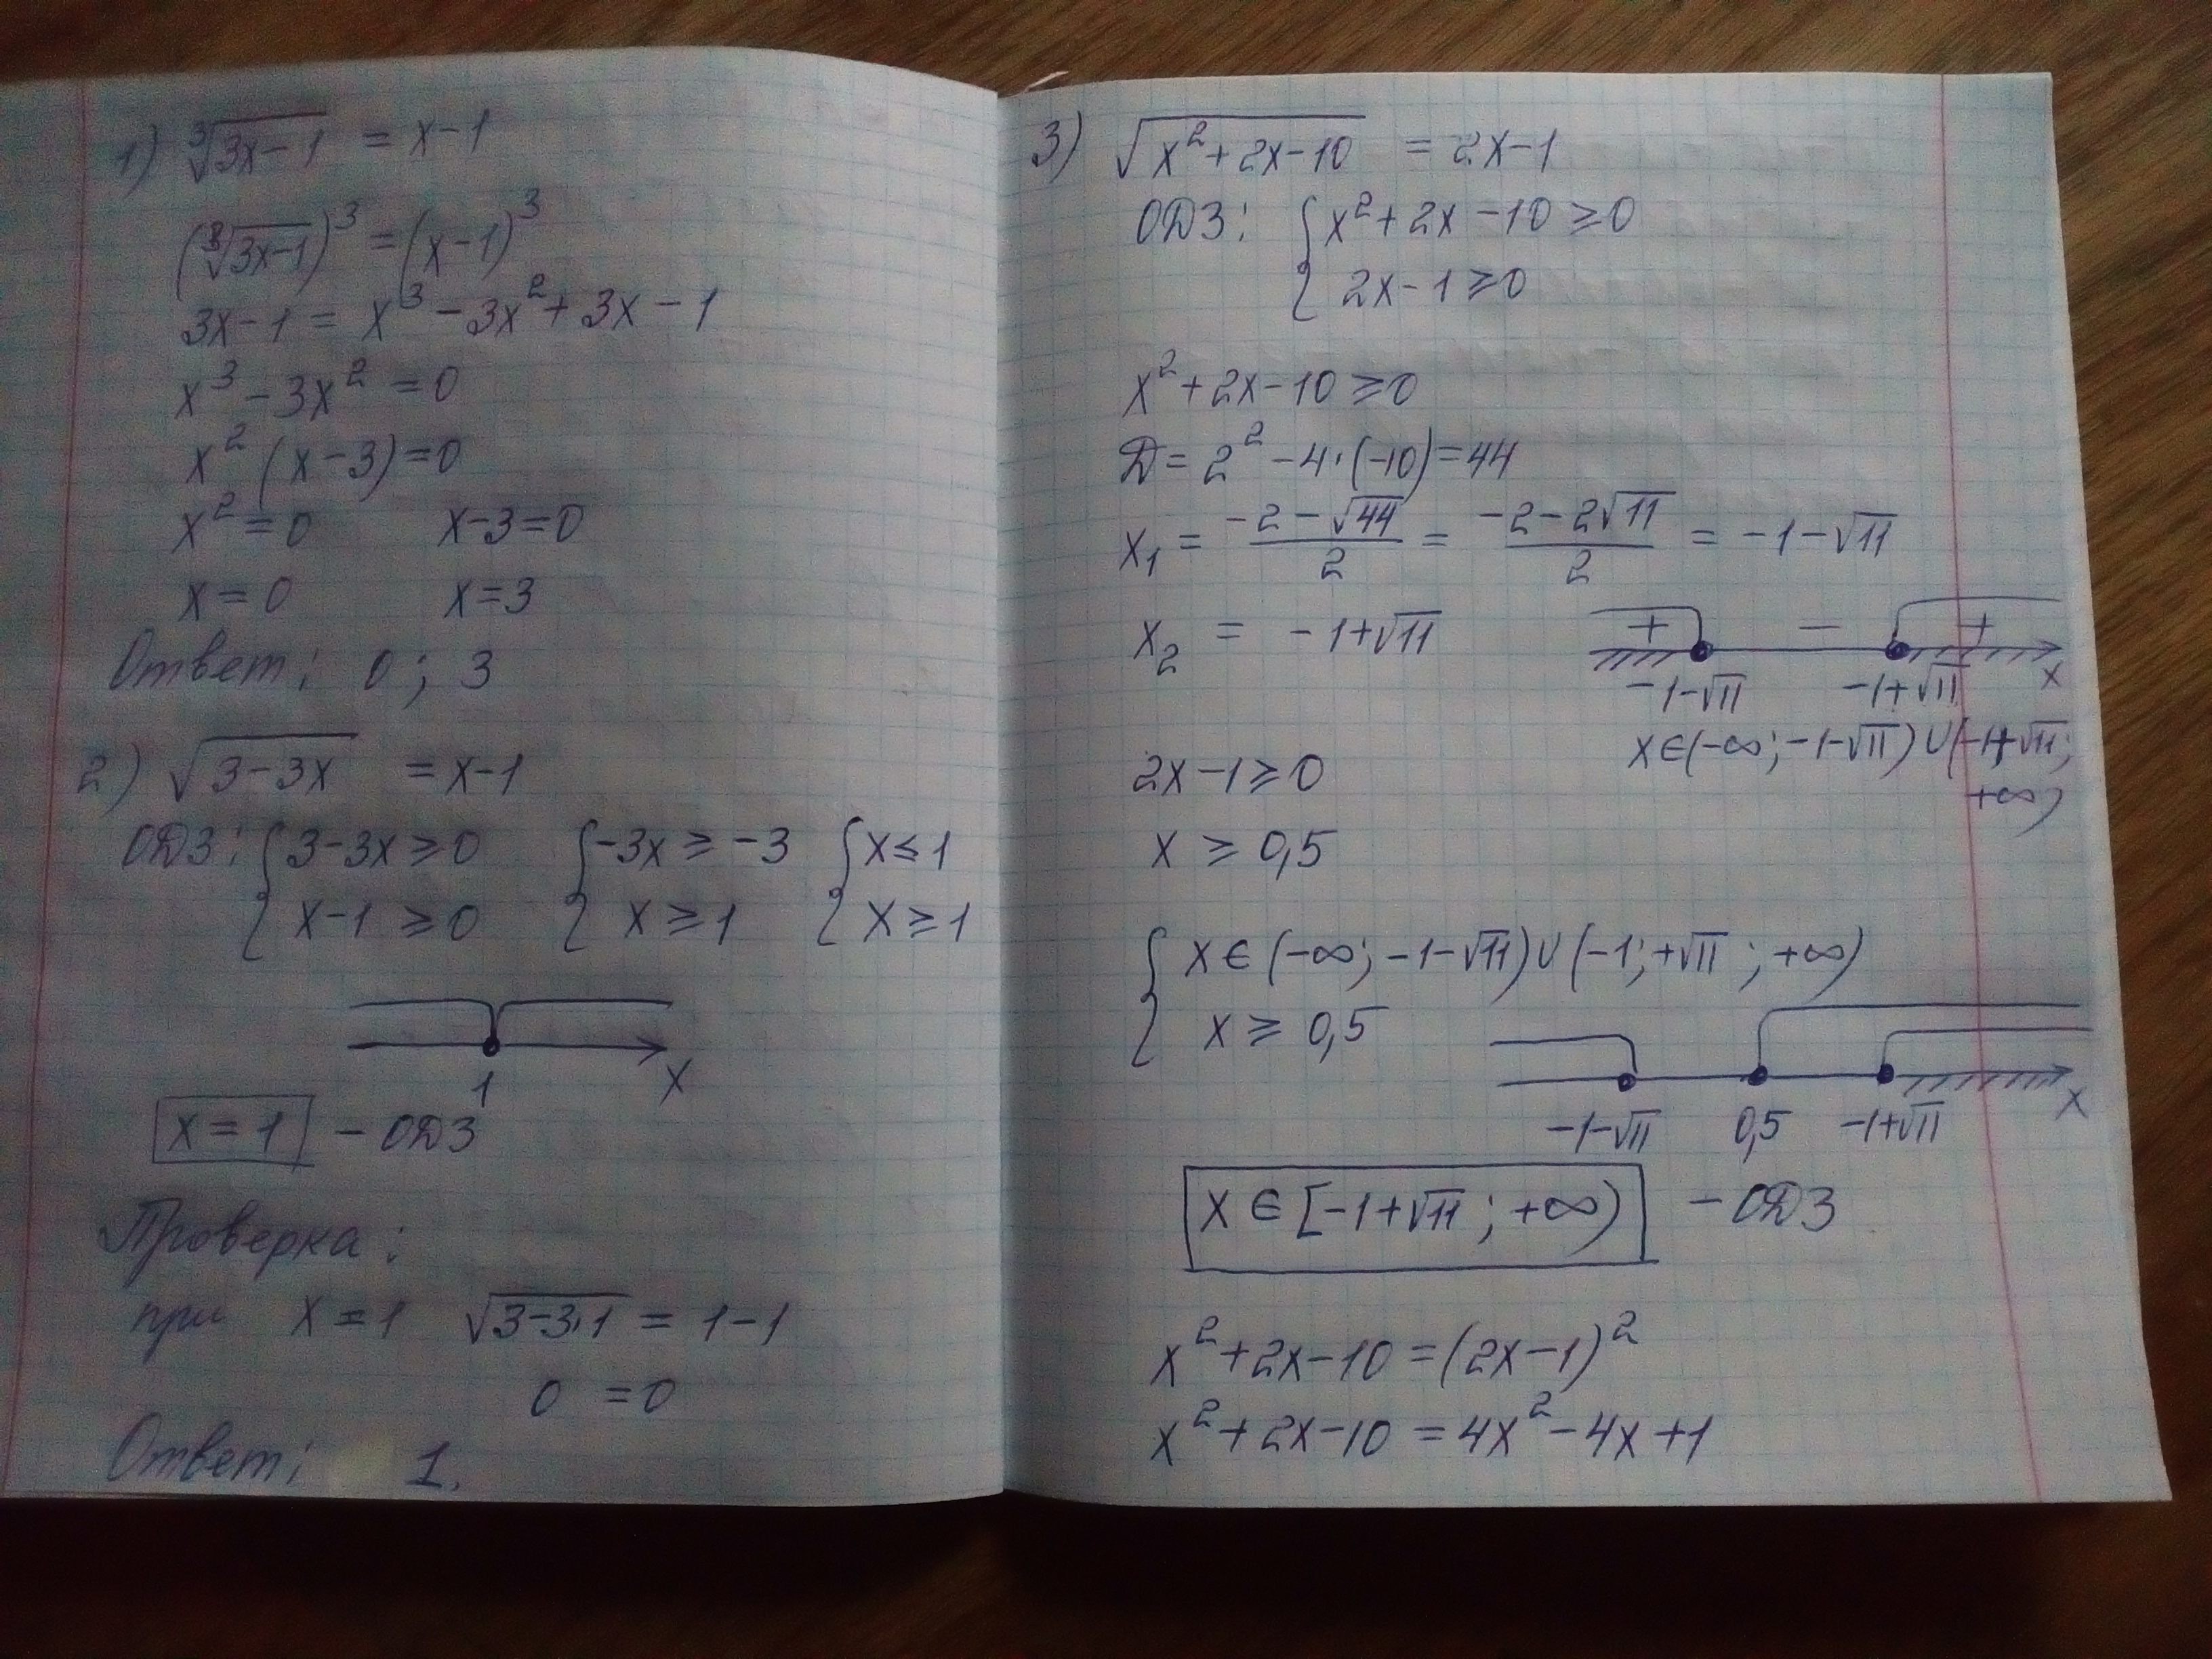 1) ∛(3x-1) = x-1
(∛(3x-1))³ = (x-1)³
3x-1 = x³-3x²+3x-1
x³-3x² = 0
x²(x-3)=0
x²=0 x-3=0
x=0 x=3
Ответ: 0; 3
2) √(3-3x) = x-1
ОДЗ: { 3-3x ≥ 0 { -3x ≥ -3 { x ≤ 1
x-1 ≥ 0 x ≥ 1 x ≥ 1
1 x
x = 1 - ОДЗ
Проверка:
при x = 1 √(3-3·1) = 1-1
0 = 0
Ответ: 1.
3) √(x²+2x-10) = 2x-1
ОДЗ: { x²+2x-10 ≥ 0
2x-1 ≥ 0
x²+2x-10 ≥ 0
D = 2²-4·(-10)=44
x₁ = (-2-√44)/2 = (-2-2√11)/2 = -1-√11
x₂ = -1+√11
+ - +
-1-√11 -1+√11 x
x∈(-∞; -1-√11)∪(-1+√11;
+∞)
2x-1 ≥ 0
x ≥ 0,5
{ x ∈ (-∞; -1-√11)∪(-1;+√11 ; +∞)
x ≥ 0,5
-1-√11 0,5 -1+√11 x
x ∈ [-1+√11 ; +∞) - ОДЗ
x²+2x-10 = (2x-1)²
x²+2x-10 = 4x²-4x+1